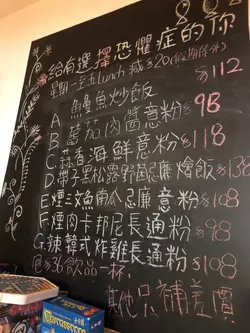 給有選擇恐懼症的你
星期一至五lunch 減$20(假期除外)
A 鰻魚炒飯 $112
B. 蕃茄肉醬意粉 $98
C. 蒜香海鮮意粉 $118
D. 帶子黑松露野菌忌廉燴飯 $138
E. 煙三文魚南瓜忌廉意粉 $108
F. 煙肉卡邦尼長通粉 $98
G. 辣韓式炸雞長通粉 $108
包$36飲品一杯,
其他只補差價
Carcassonne